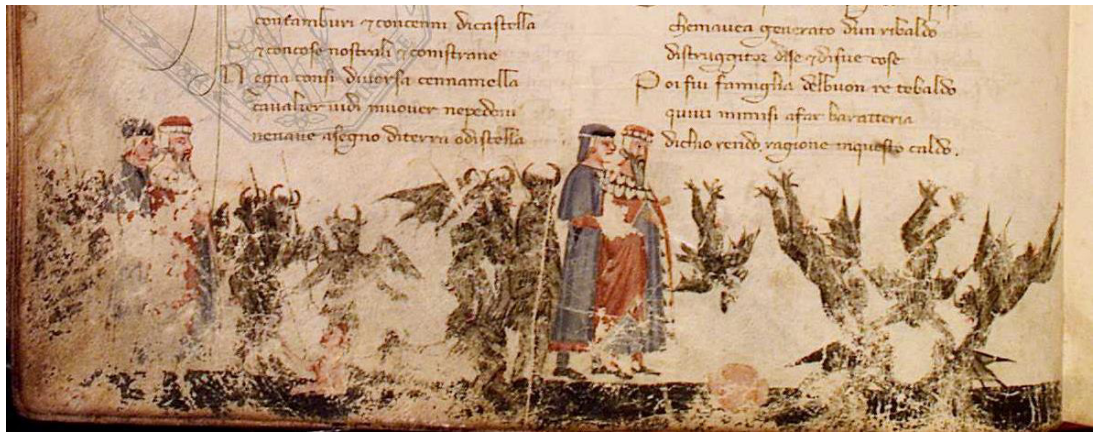 con tamburi ⁊ concenni dicastella
⁊ concose nostrali ⁊ comistrane
Negia consi diversa cennamella
cavalier vidi muover nepedoni
nenave asegno diterra odistella
chemavea generato dun ribaldo
distruggitor dise ⁊ disue cose
Poi fui famiglia delbuon re tebaldo
quivi mimisi afar baratteria
dichio rendo ragione inquesto caldo.